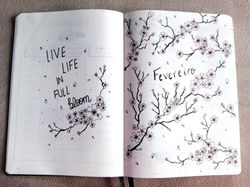 LIVE
LIFE
IN
FULL
Bloom
Fevereiro